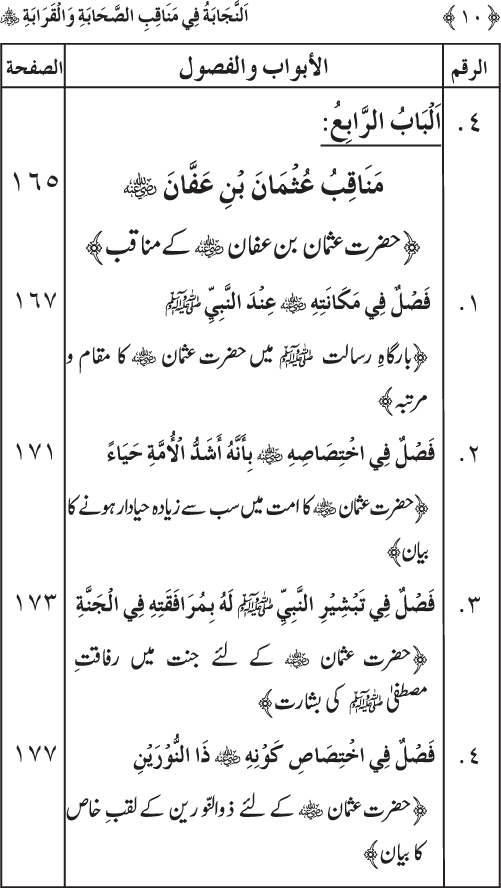 ﴿ ١٠ ﴾ اَلنَّجَابَةُ فِي مَنَاقِبِ الصَّحَابَةِ وَالْقَرَابَةِ ﷺ
الرقم الأبواب والفصول الصفحة
٤. اَلْبَابُ الرَّابِعُ:
مَنَاقِبُ عُثْمَانَ بْنِ عَفَّانَ رضي الله عنه ١٦٥
﴿حضرت عثمان بن عفان رضي الله عنه کے مناقب﴾
١. فَصْلٌ فِي مَكَانَتِهِ رضي الله عنه عِنْدَ النَّبِيِّ ﷺ ١٦٧
﴿بارگاہِ رسالت ﷺ میں حضرت عثمان رضي الله عنه کا مقام و
مرتبہ﴾
٢. فَصْلٌ فِي اخْتِصَاصِهِ رضي الله عنه بِأَنَّهُ أَشَدُّ الْأُمَّةِ حَيَاءً ١٧١
﴿حضرت عثمان رضي الله عنه کا امت میں سب سے زیادہ حیادار ہونے کا
بیان﴾
٣. فَصْلٌ فِي تَبْشِيْرِ النَّبِيِّ ﷺ لَهُ بِمُرَافَقَتِهِ فِي الْجَنَّةِ ١٧٣
﴿حضرت عثمان رضي الله عنه کے لئے جنت میں رفاقتِ
مصطفیٰ ﷺ کی بشارت﴾
٤. فَصْلٌ فِي اخْتِصَاصِ كَوْنِهِ رضي الله عنه ذَا النُّوْرَيْنِ ١٧٧
﴿حضرت عثمان رضي الله عنه کے لئے ذوالنّورین کے لقبِ خاص
کا بیان﴾